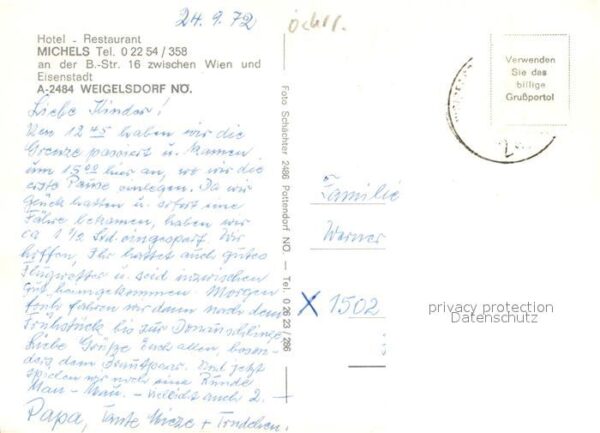 24.9.72
Hotel - Restaurant
MICHELS Tel. 0 22 54 / 358
an der B.-Str. 16 zwischen Wien und
Eisenstadt
A-2484 WEIGELSDORF NÖ.
Liebe Kinder!
12 45 haben wir die
Grenze passiert u. kamen
um 15 00 hier an, wo wir die
erste Pause einlegen. Da wir
Glück hatten u. sofort eine
Fähre bekamen, haben wir
ca 1 1/2 Std eingespart. Wir
hoffen, Ihr hattet auch gutes
Flugwetter u. seid inzwischen
gut heimgekommen. Morgen
früh fahren wir dann nach dem
Frühstück bis zur Donauschlinge.
Liebe Grüße Euch allen, beson-
ders dem Brautpaar. Und jetzt
spielen wir noch eine Runde
Mau - Mau. - vielleicht auch 2. -
Papa, Tante Mieze + Trudchen.
Foto Schächter 2486 Pottendorf NÖ. — Tel. 0 26 23 / 286
Verwenden
Sie das
billige
Grußporto!
Familie
Werner
X 1502
privacy protection
Datenschutz